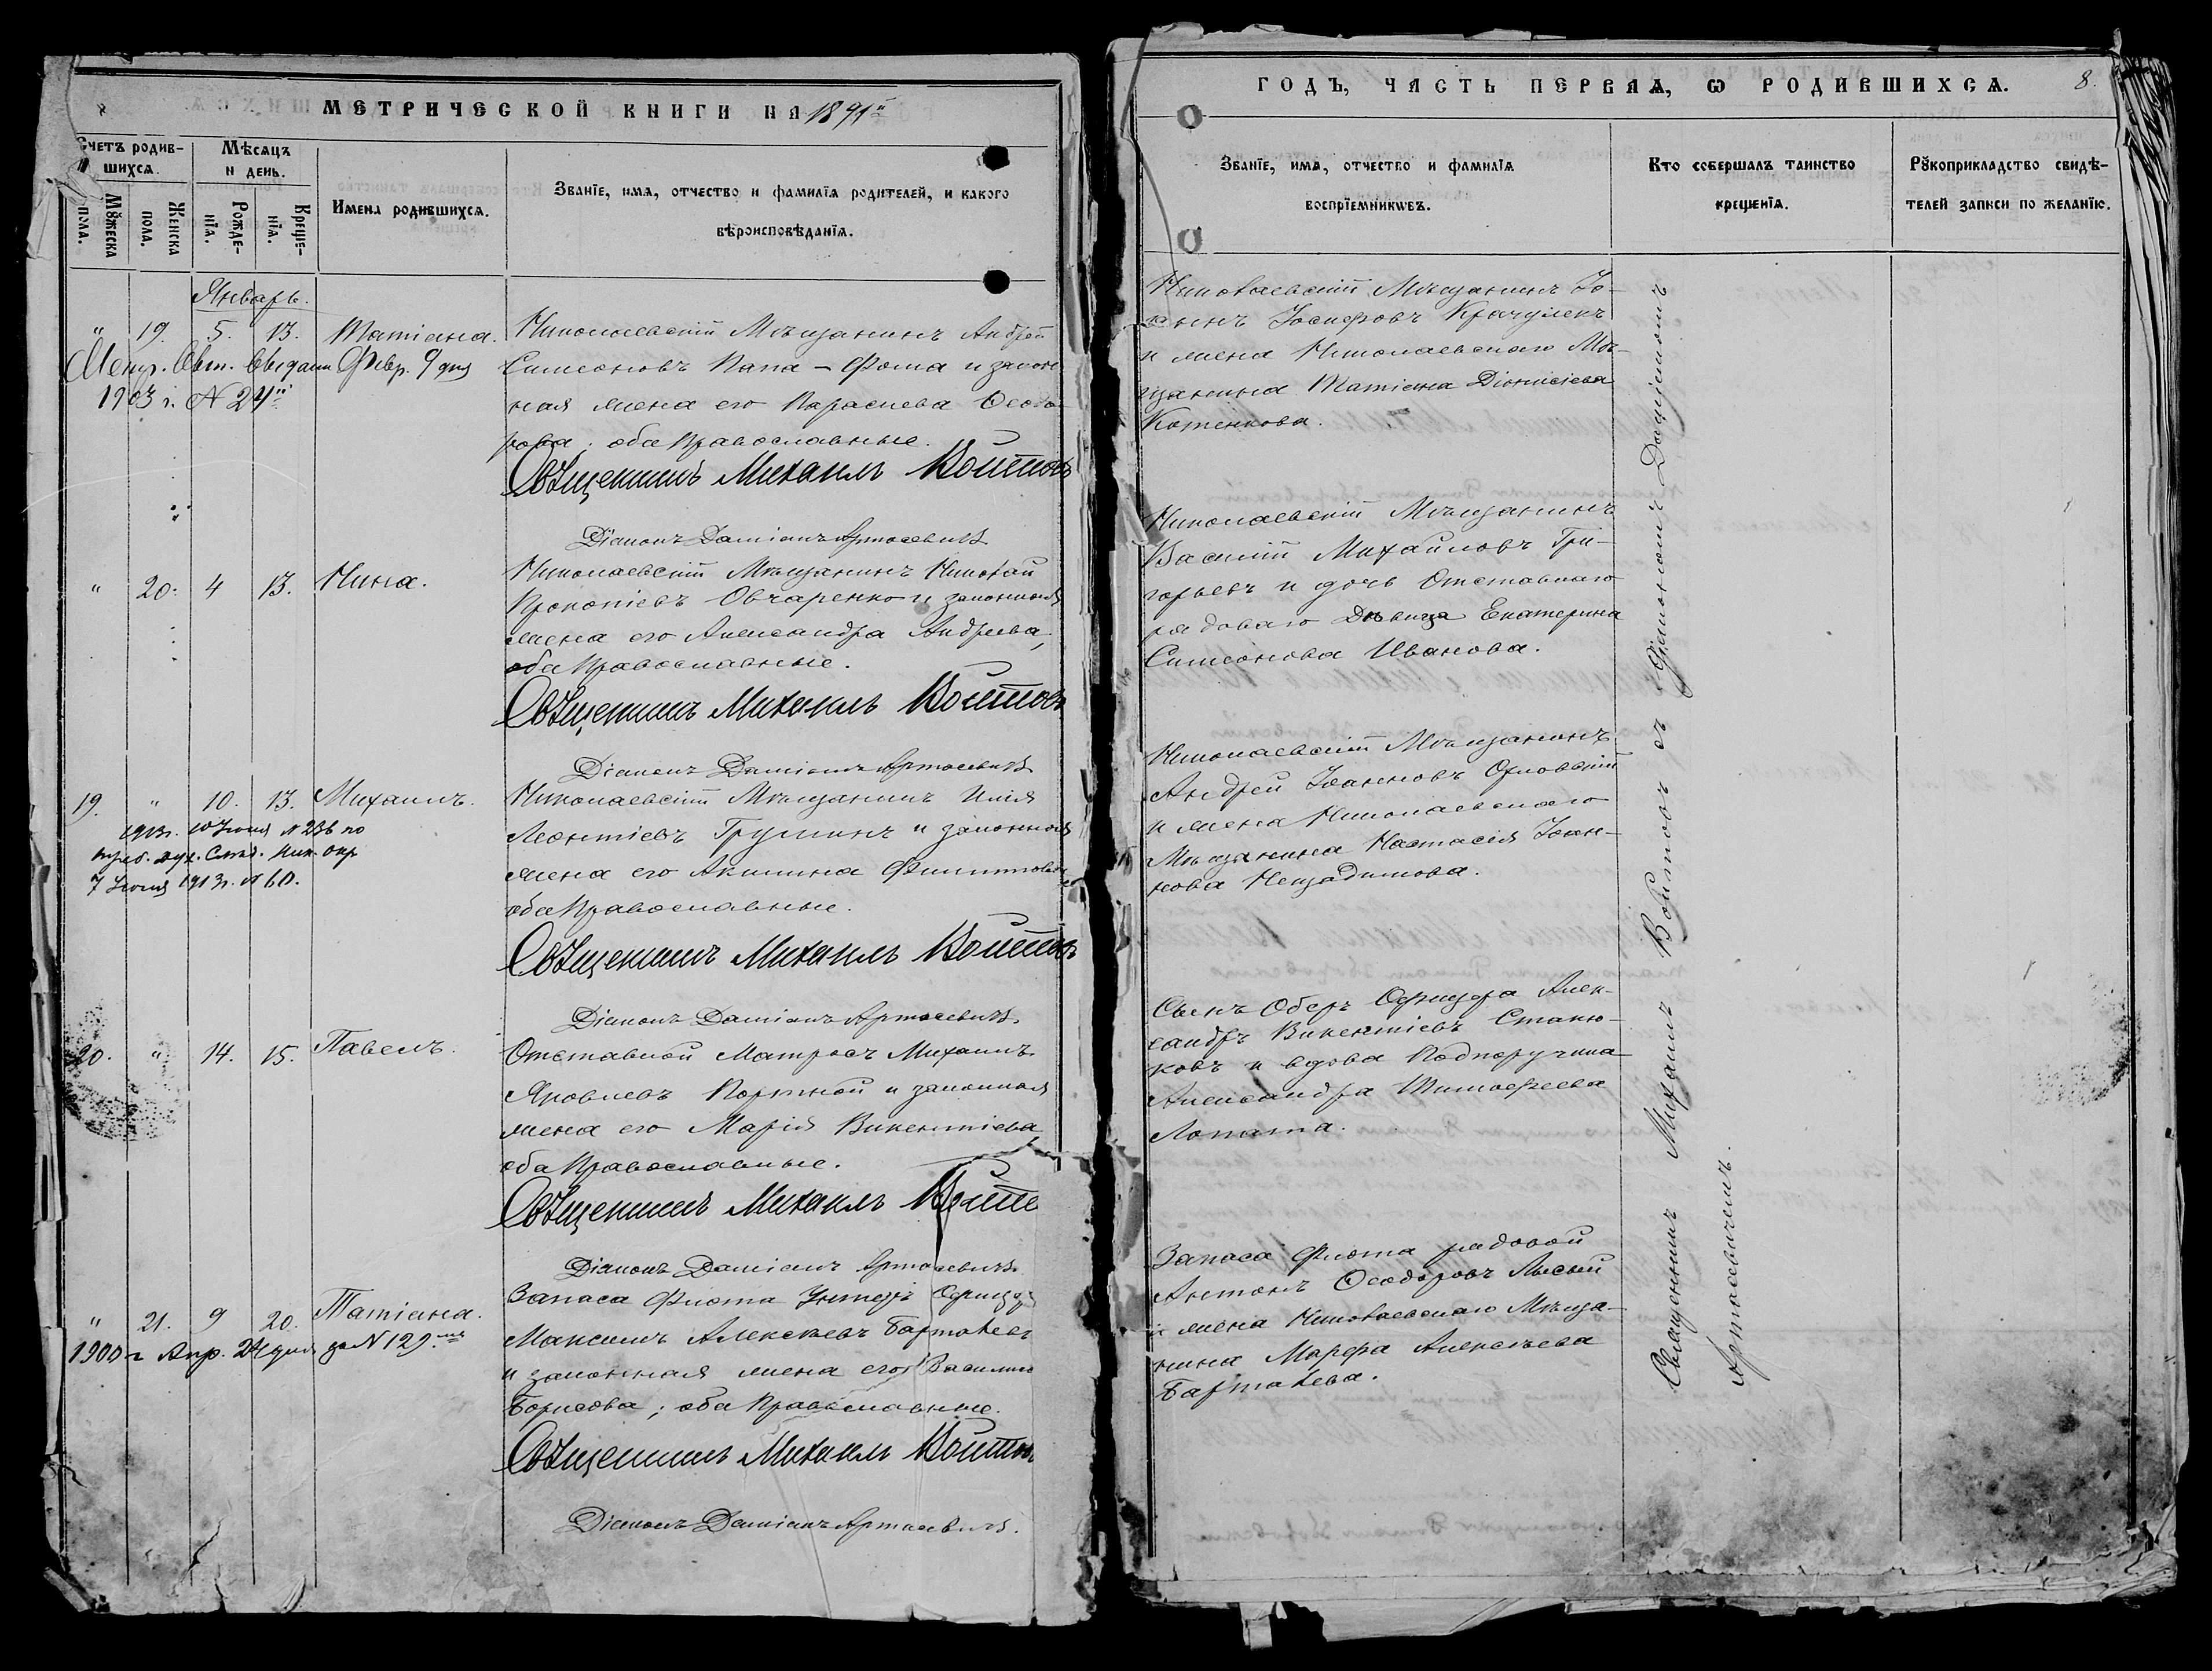 МЕТРИЧЕСКОЙ КНИГИ НА 1891й
Счетъ родив-
шихся.
Мѣсяцъ
и день.
Мꙋжеска
пола.
Женска
пола.
Рожде-
нїя.
Креще-
нїя.
Имена родившихся.
Званїе, имя, отчество и фамилїя родителей, и какого
вѣроисповѣданїя.
Январь.
" 19. 5. 13. Татіана.
Метр. Свид. выдана Февр. 9 дня
1903 г. № 24й
Николаевскій Мѣщанинъ Андрей
Симеоновъ Папа-Фома и закон
ная жена его Параскева Ѳеодо-
рова; оба Православные.
Священникъ Михаилъ Войтовъ
Діаконъ Даміанъ Артасевичъ
" 20. 4 13. Нина.
Николаевскій Мѣщанинъ Николай
Прокопіевъ Овчаренко и законная
жена его Александра Андреева,
оба Православные.
Священникъ Михаилъ Войтовъ
Діаконъ Даміанъ Артасевичъ
19. " 10. 13. Михаилъ.
1913г. 10 Іюня № 236 по
треб. дух. Ник. окр
7 Іюня 1913г. № 60.
Николаевскій Мѣщанинъ Илія
Леонтіевъ Грушинъ и законная
жена его Акилина Филиппова
оба Православные.
Священникъ Михаилъ Войтовъ
Діаконъ Даміанъ Артасевичъ.
20. " 14. 15. Павелъ.
Отставной Матросъ Михаилъ
Яковлевъ Портной и законная
жена его Марія Викентіева
оба Православные.
Священникъ Михаилъ Войто
Діаконъ Даміанъ Артасевичъ.
" 21. 9 20. Татіана.
1900 г Апр. 24 дня за № 129.мъ
Запаса Флота Унтеръ Офицеръ
Максимъ Алексѣевъ Барталев
и законная жена его Василис
Борисова; оба Православные.
Священникъ Михаилъ Войтов
Діаконъ Даміанъ Артасевичъ.
ГОДЪ, ЧАСТЬ ПЕРВАЯ, Ѡ РОДИВШИХСЯ.
8.
Званїе, имя, отчество и фамилїя
воспрїемникѡвъ.
Кто совершалъ таинство
крещенїя.
Рꙋкоприкладство свидѣ-
телей записи по желанїю.
Николаевскій Мѣщанинъ Іо-
аннъ Іосифовъ Крачулекъ
и жена Николаевскаго Мѣ-
щанина Татіана Діонисіева
Котенкова.
Николаевскій Мѣщанинъ
Василій Михайловъ Гри-
горьевъ и дочь Отставнаго
рядоваго Дѣвица Екатерина
Симеонова Иванова.
Николаевскій Мѣщанинъ
Андрей Іоанновъ Орловскій
и жена Николаевскаго
Мѣщанина Настасія Іоан-
нова Нещадимова.
Сынъ Оберъ Офицера Алек-
сандръ Викентіевъ Станю-
ковъ и вдова Подпоручика
Александра Тимофеева
Лопата.
Запаса Флота рядовой
Антонъ Ѳеодоровъ Лысый
и жена Николаевскаго Мѣща-
нина Марфа Алексѣева
Барталева.
Священникъ Михаилъ Войтовъ съ Діакономъ Даміаномъ
Артасевичемъ.